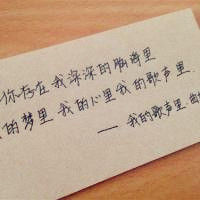 你存在 我深深的脑海里
的梦里 我的心里 我的歌声里
—— 我的歌声里·曲